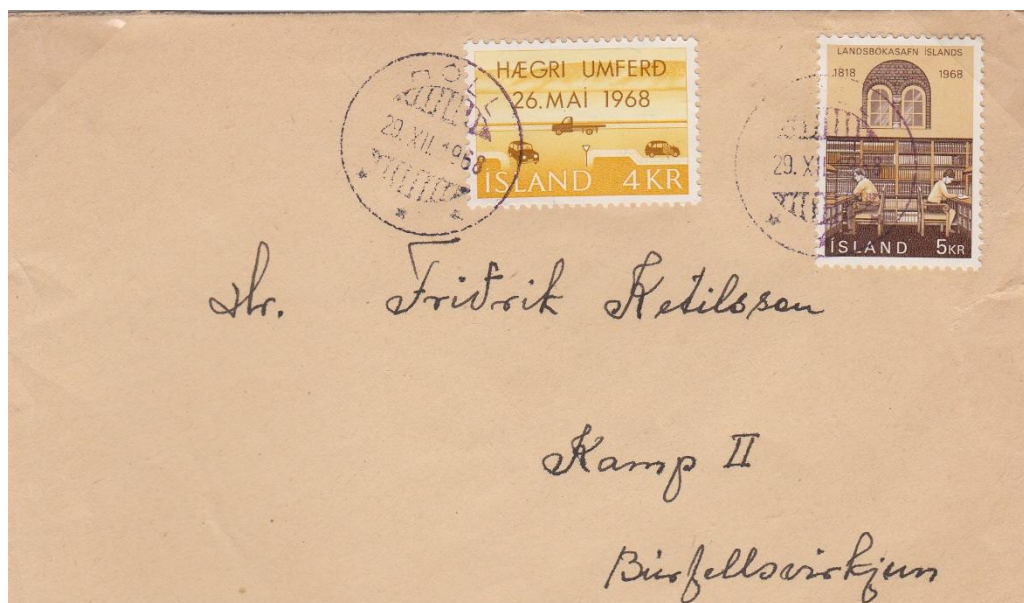 HÆGRI UMFERÐ
26. MAÍ 1968
ÍSLAND 4 KR
29. XII. 1968
LANDSBÓKASAFN ÍSLANDS
1818 1968
ÍSLAND 5 KR
29. XII. 1968
Hr. Friðrik Ketilsson
Kamp II
Búrfellsvirkjun